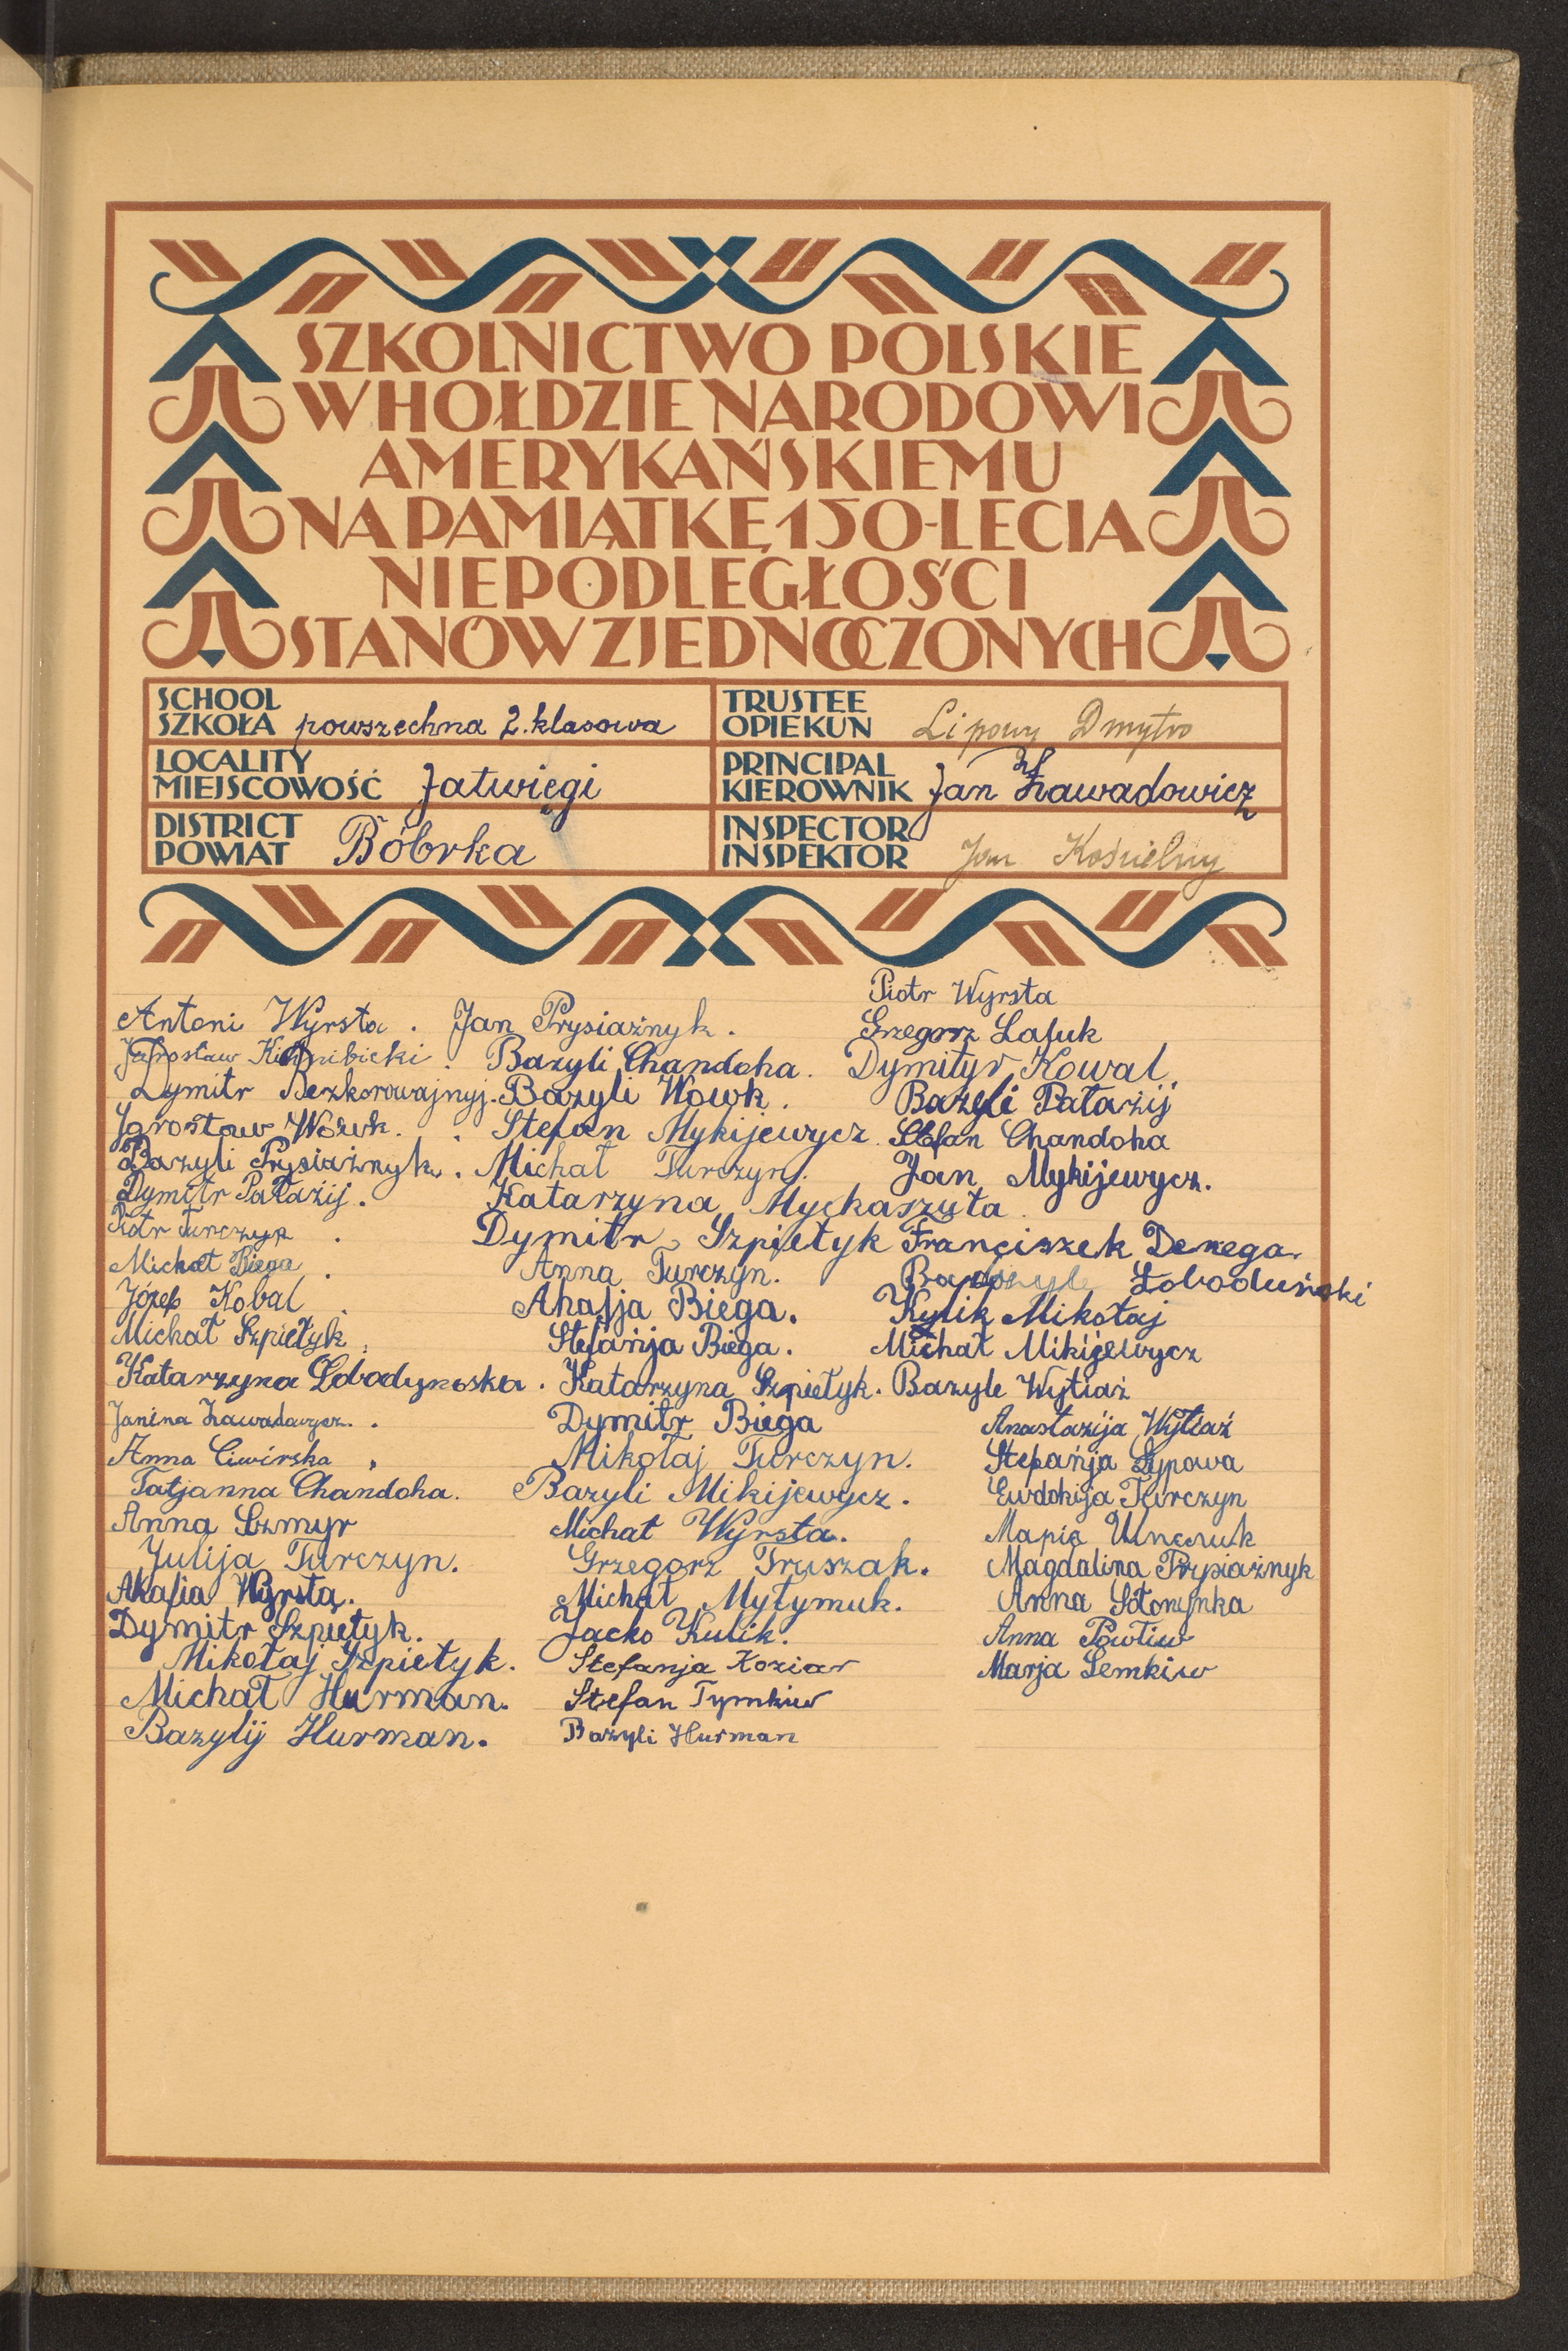 SZKOLNICTWO POLSKIE
W HOŁDZIE NARODOWI
AMERYKAŃSKIEMU
NA PAMIĄTKĘ 150-LECIA
NIEPODLEGŁOŚCI
STANÓW ZJEDNOCZONYCH
SCHOOL
SZKOŁA powszechna 2. klasowa
TRUSTEE
OPIEKUN Lipowy Dmytro
LOCALITY
MIEJSCOWOŚĆ Jatwięgi
PRINCIPAL
KIEROWNIK Jan Zawadowicz
DISTRICT
POWIAT Bóbrka
INSPECTOR
INSPEKTOR Jan Kościelny
Antoni Wyrsta .
Jarosław
Dymitr Bezkorowajnyj.
Jarosław Wowk.
Bazyli Prysiażnyk.
Dymitr Pałażij.
Piotr Turczyn
Michał Biega
Józef Kobal
Michał Szpiełyk
Katarzyna
Janina Zawadowycz.
Anna Ciwińska
Tatjanna Chandoha.
Anna Szmyr
Julija Turczyn.
Akafia Wyrsta.
Dymitr Szpiełyk.
Mikołaj Szpiełyk.
Michał Hurman.
Bazylij Hurman.
Jan Prysiażnyk.
Bazyli Chandoha.
Bazyli Wowk.
Stefan Mykijewycz.
Michał Turczyn.
Katarzyna Myckaszuta
Dymitr Szpiełyk
Anna Turczyn.
Ahafja Biega.
Stefańja Biega.
Katarzyna Szpiełyk.
Dymitr Biega
Mikołaj Turczyn.
Bazyli Mikijewycz.
Michał Wyrsta.
Grzegorz Truszak.
Michał Mytymuk.
Jacko Kulik.
Stefanja Koziar
Stefan Tymkiw
Bazyli Hurman
Piotr Wyrsta
Grzegorz Lafuk
Dymityr Kowal
Bazyli Pałażij
Stefan Chandoha
Jan Mykijewycz.
Franciszek Denega.
Łoboduński
Kylik Mikołaj
Michał Mikijewycz
Bazyle Wytiaż
Anastazija Wytiaż
Stepańja Lypowa
Ewdokija Turczyn
Magdalina Prysiażnyk
Anna Sołonynka
Anna Pawliw
Marja Semkiw